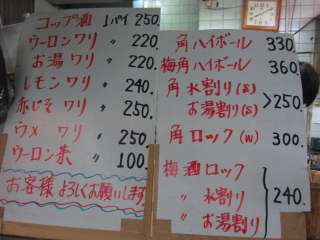 コップ酒 1パイ 250.
ウーロンワリ 〃 220.
お湯ワリ 〃 220.
レモンワリ 〃 240.
赤じそワリ 〃 250.
ウメワリ 〃 250
ウーロン茶 〃 100.
お客様よろしくお願いします
角ハイボール 330.
梅角ハイボール 360.
角 水割り(S)
〃 お湯割り(S) >250.
角ロック(W) 300.
梅酒ロック
〃 水割り 240.
〃 お湯割り